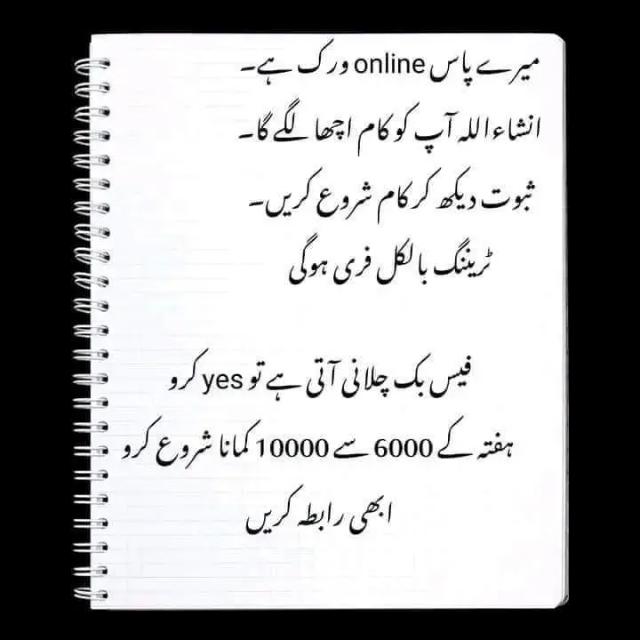 میرے پاس online ورک ہے۔
انشاءاللہ آپ کو کام اچھا لگے گا۔
ثبوت دیکھ کر کام شروع کریں۔
ٹریننگ بالکل فری ہوگی
فیس بک چلانی آتی ہے تو yes کرو
ہفتہ کے 6000 سے 10000 کمانا شروع کرو
ابھی رابطہ کریں